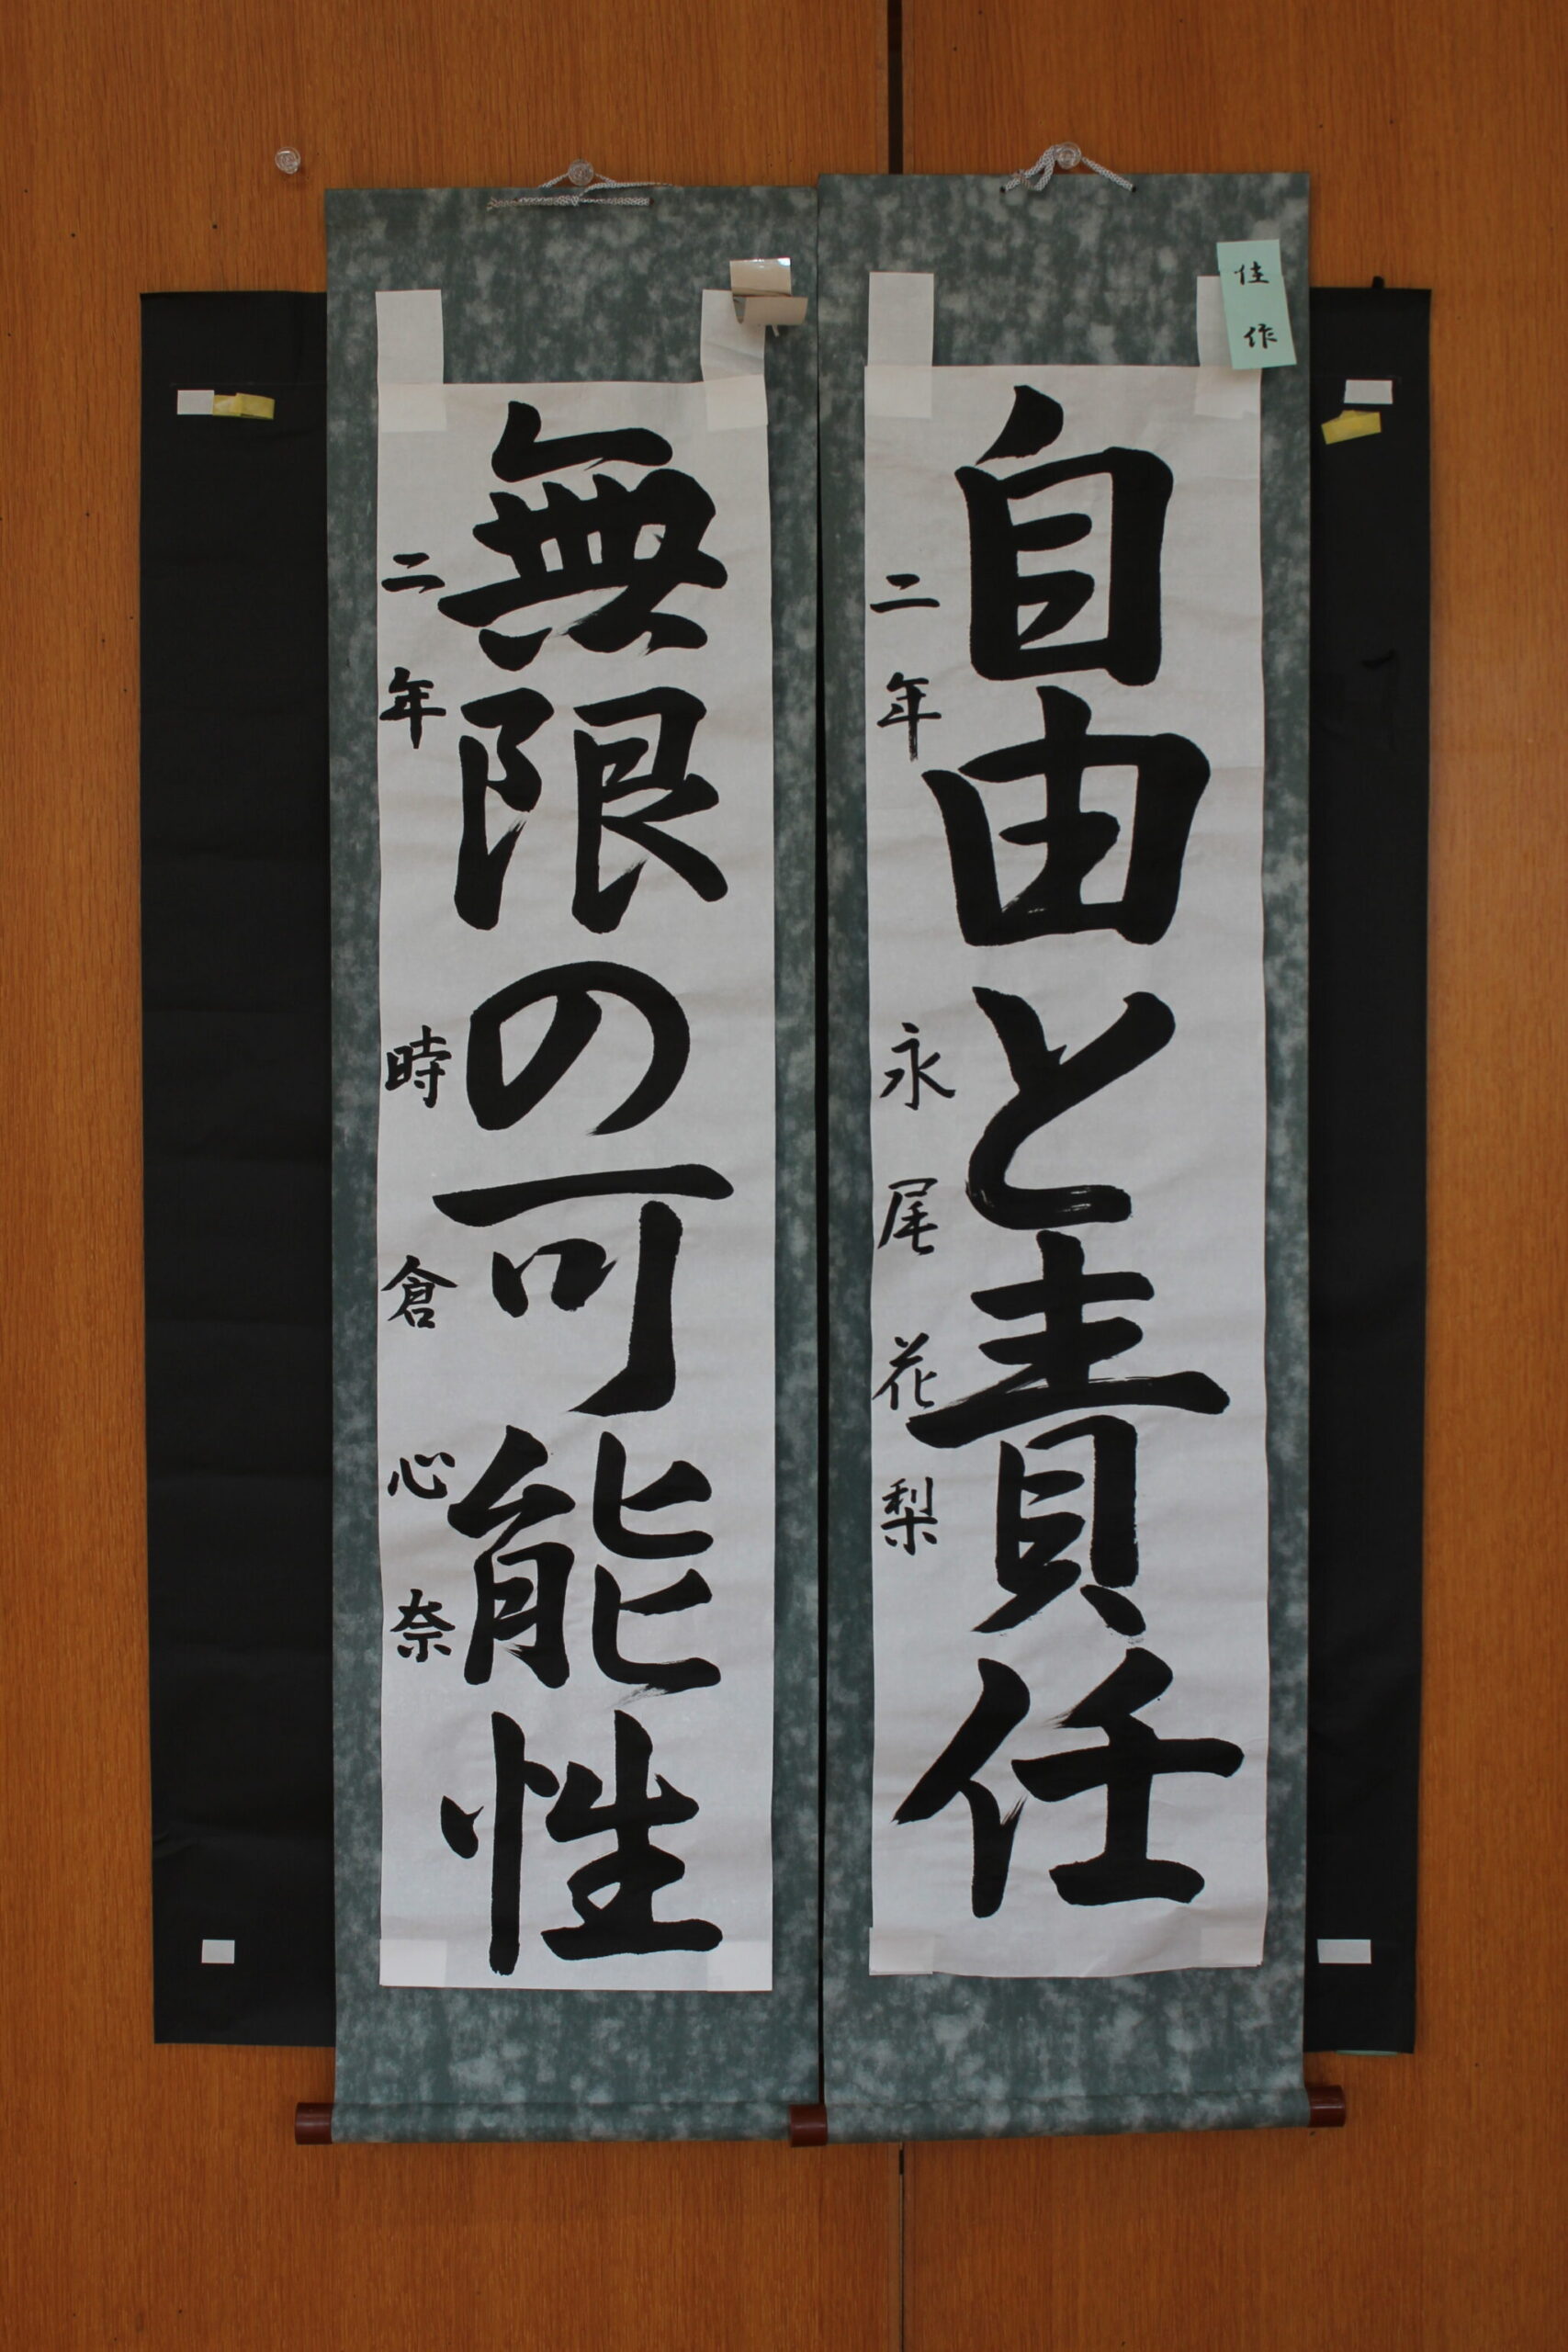 佳作
自由と責任
二年 永尾花梨
無限の可能性
二年 時倉心奈